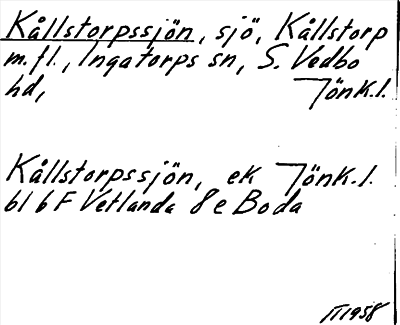 Kållstorpssjön, sjö, Kållstorp
m.fl., Ingatorps sn, S. Vedbo
hd, Jönk.l.
Kållstorpssjön, ek Jönk.l.
bl 6 F Vetlanda 8e Boda
II 1958